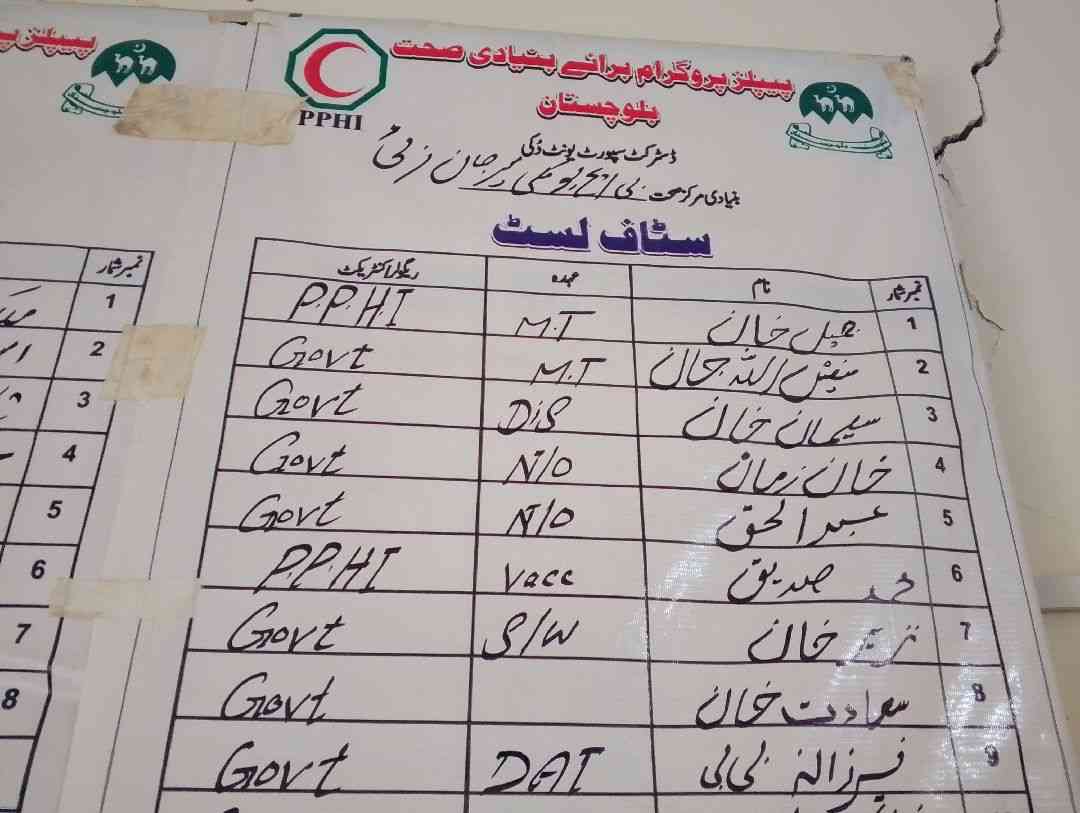 پیپلز پروگرام برائے بنیادی صحت
بلوچستان
PPHI
ڈسٹرکٹ سپورٹ یونٹ دُکی
بنیادی مرکز صحت بی ایچ یو
سٹاف لسٹ
نمبر شمار نام عہدہ ریگولر/کنٹریکٹ
1 خان M.T P.P.H.I
2 اللہ M.T Govt
3 سلیمان خان Dis Govt
4 خان زمان N/O Govt
5 عبدالحق N/O Govt
6 محمد صدیق Vacc P.P.H.I
7 خان S/W Govt
8 سعادت خان Govt
9 فرزانہ بی بی DAI Govt
نمبر شمار
1
2
3
4
5
6
7
8